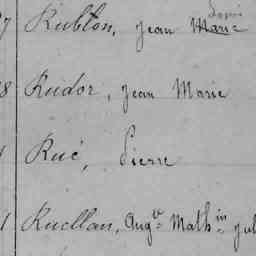 7 Rublon, Jean Marie Louis
8 Rudor, Jean Marie
Rué, Pierre
1 Ruellan, Augte Mathin Jul